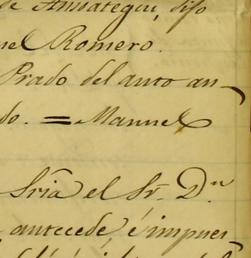 de Amiategui, dijo
uel Romero.
Prado del auto an-
do. = Manuel
Sría el Sr. Dn
antecede é impues